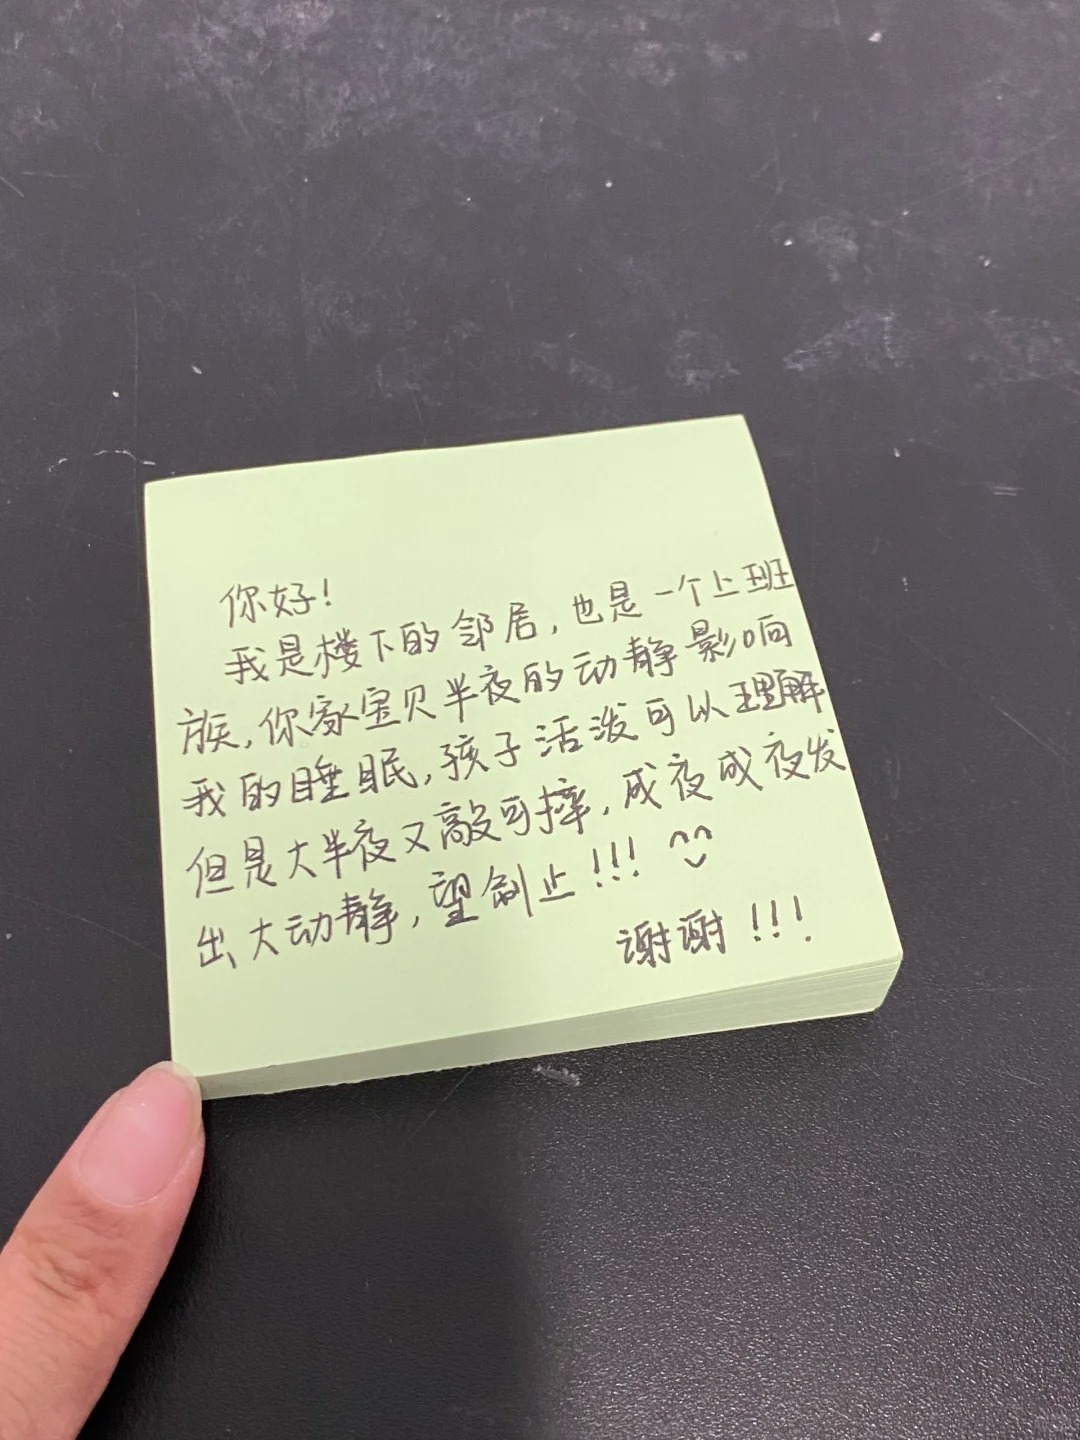 你好!
我是楼下的邻居,也是一个上班
族,你家宝贝半夜的动静影响
我的睡眠,孩子活泼可以理解
但是大半夜又敲可摔,成夜成夜发
出大动静,望制止!!!
谢谢!!!